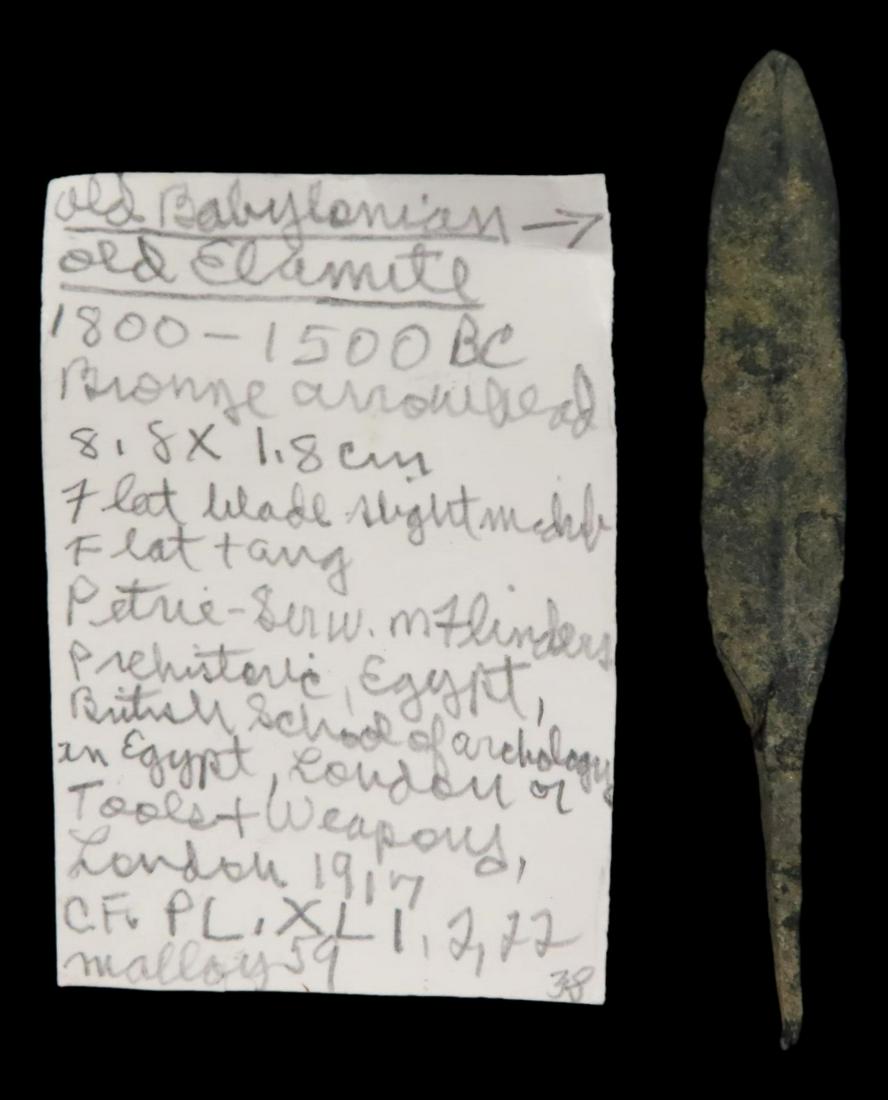 old Babylonian →
old Elamite
1800 - 1500 BC
Bronze arrowhead
8.8 x 1.8 cm
Flat blade slight midrib
Flat tang
Petrie - Sir W. M Flinders
Prehistoric, Egypt,
British School of archology
in Egypt, London or
Tools + Weapons,
London 1917
C.F. PL. XLI, 2, 22
malloy 59
38